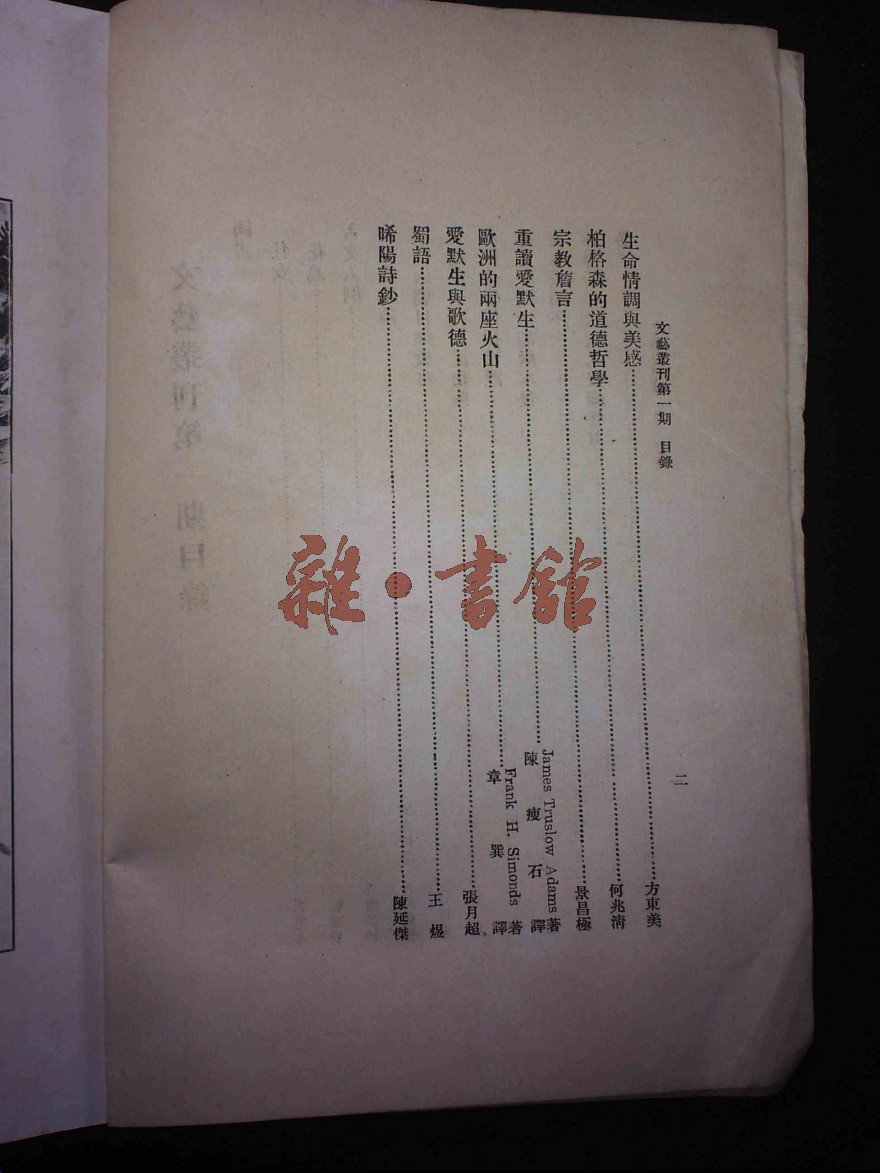 文藝叢刊第一期　目錄　二
生命情調與美感……方東美
柏格森的道德哲學……何兆清
宗教詹言……景昌極
重讀愛默生……James Truslow Adams著 陳瘦石譯
歐洲的兩座火山……Frank H. Simonds著 章巽譯
愛默生與歌德……張月超
蜀語……王煜
晞陽詩鈔……陳延傑
雜·書館